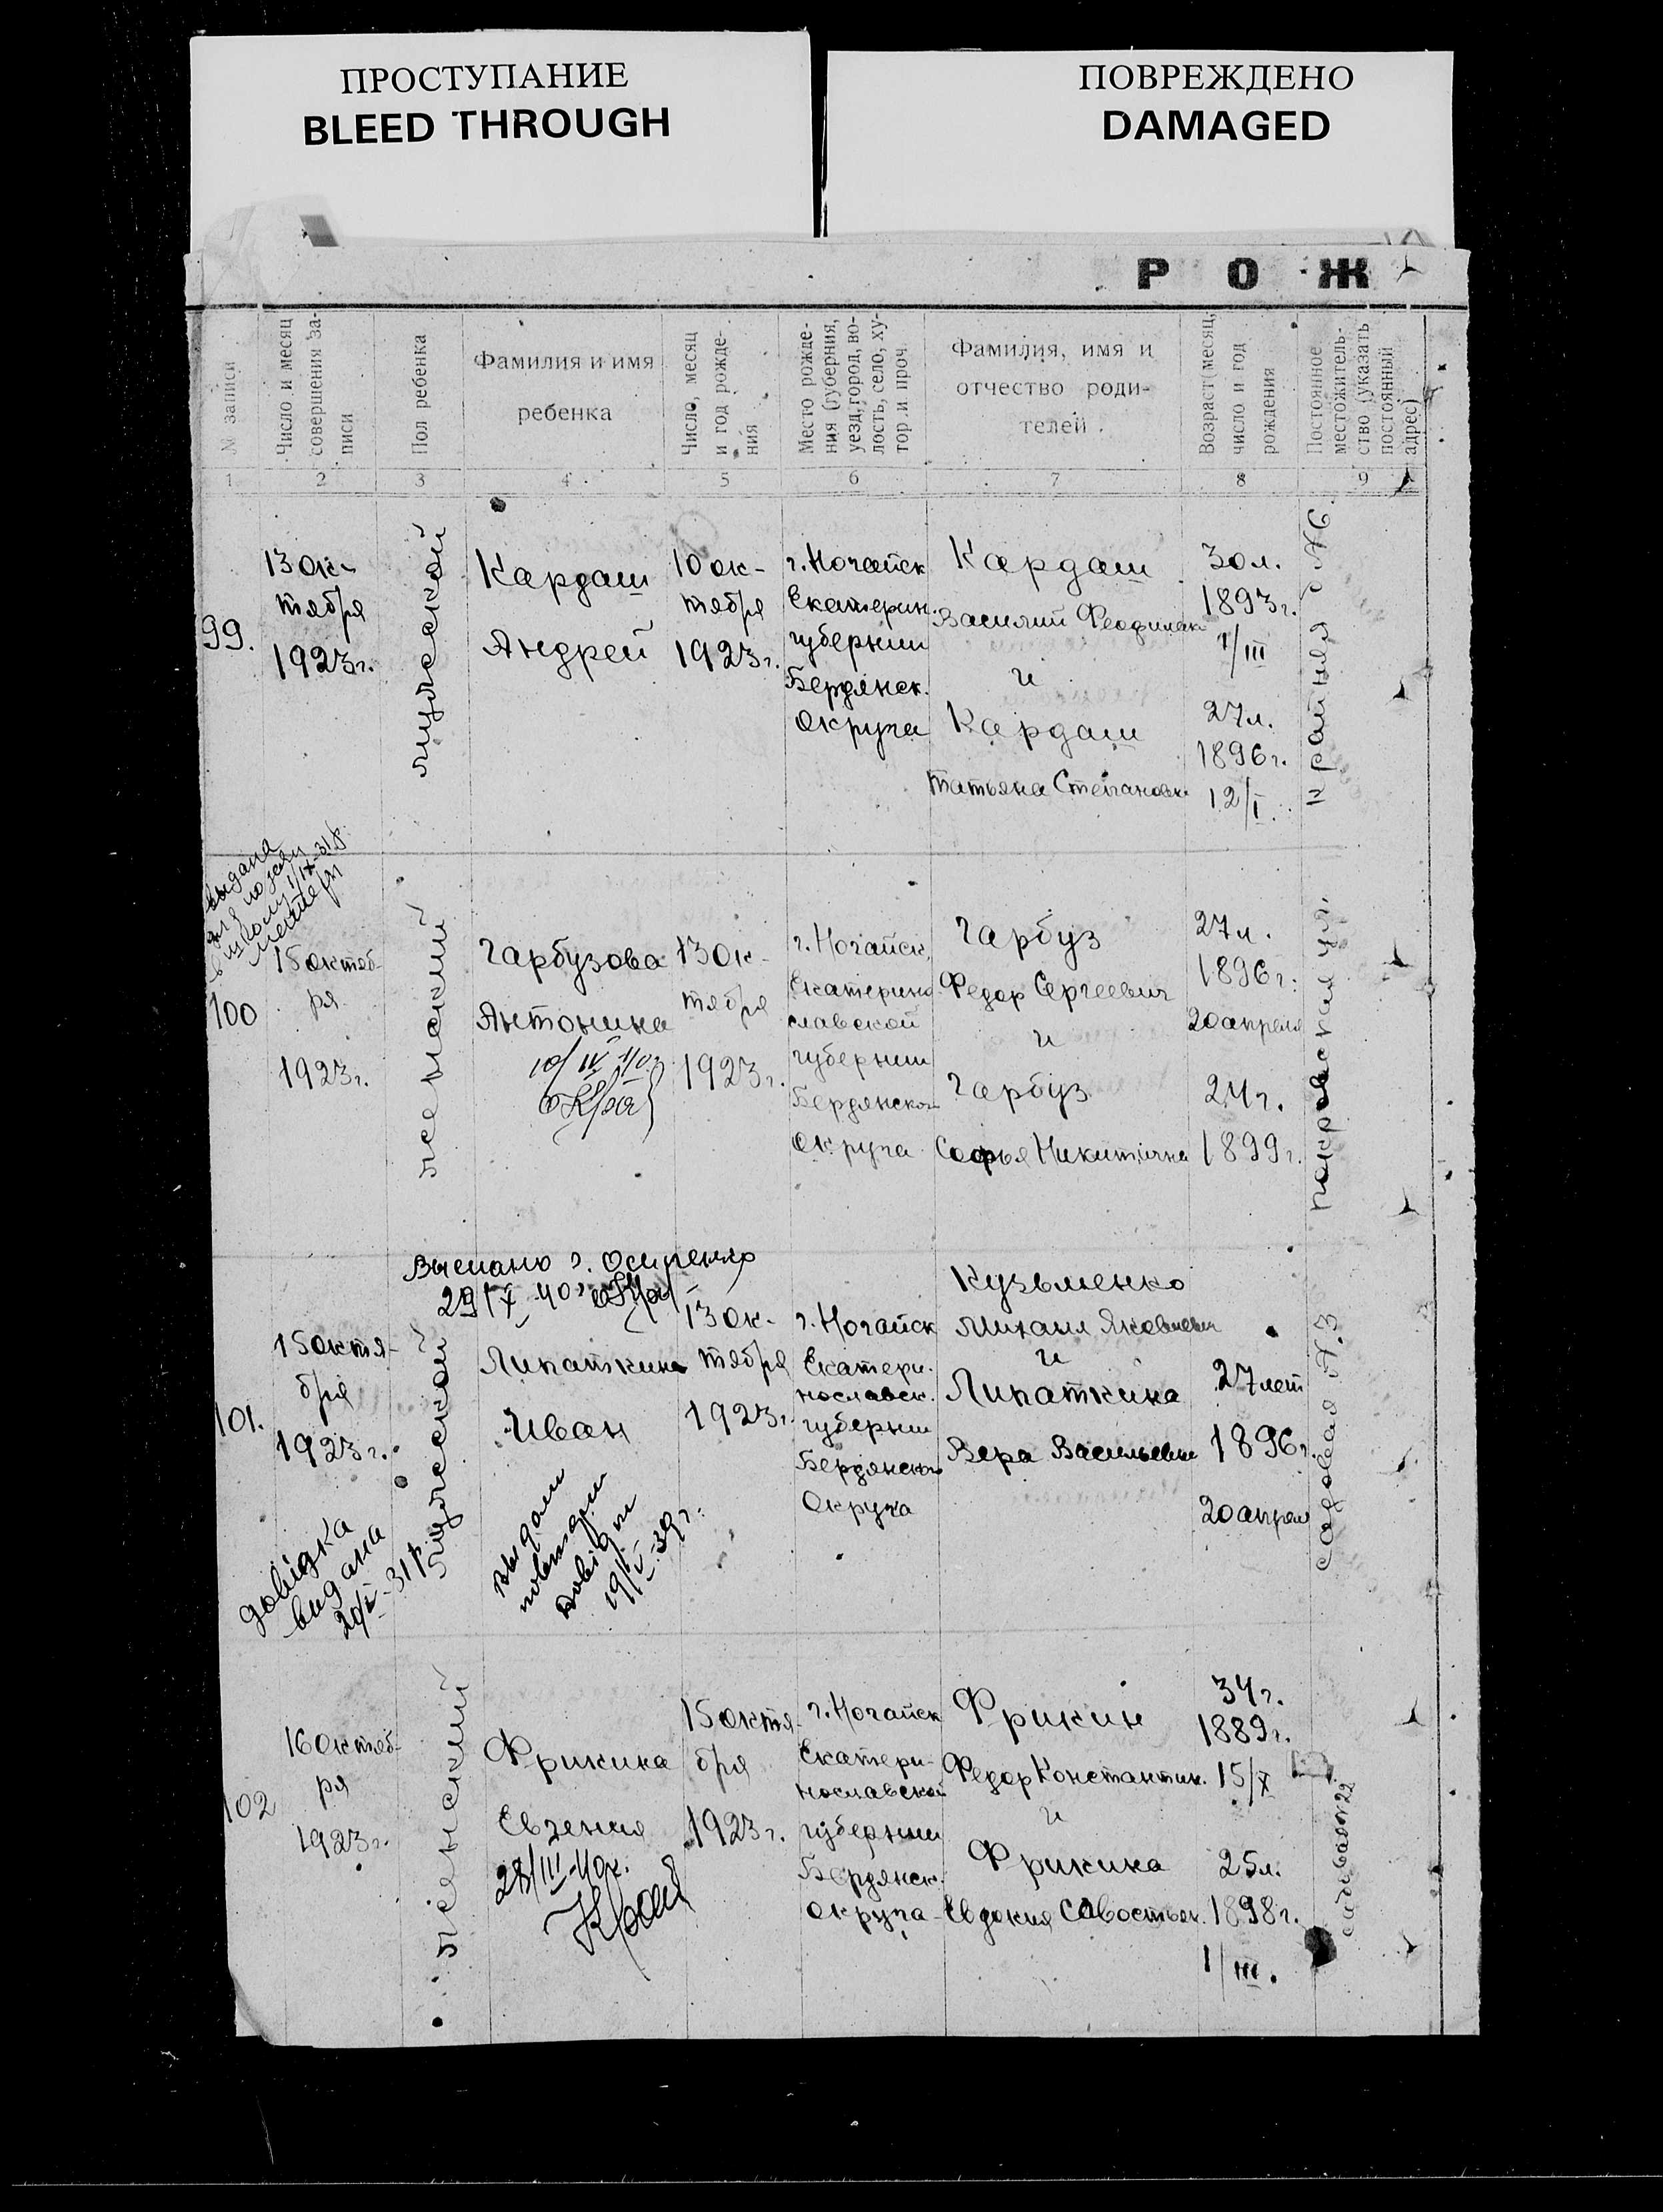 ПРОСТУПАНИЕ
BLEED THROUGH
ПОВРЕЖДЕНО
DAMAGED
Р О Ж
№ записи
Число и месяц
совершения за-
писи
Пол ребенка
Фамилия и имя
ребенка
Число, месяц
и год рожде-
ния
Место рожде-
ния (губерния,
уезд, город, во-
лость, село, ху-
тор и проч.
Фамилия, имя и
отчество роди-
телей.
Возраст (месяц,
число и год
рождения
Постоянное
местожитель-
ство (указать
постоянный
адрес)
1 2 3 4 5 6 7 8 9
99.
13 ок-
тября
1923 г.
мужеской
Кардаш
Андрей
10 ок-
тября
1923 г.
г. Ногайск
Екатерин.
губернии
Бердянск.
округа
Кардаш
Василий
и
Кардаш
Татьяна Степановна
30 л.
1893 г.
1/III
27 л.
1896 г.
12/I
выдана
школу 1/IX-31 р.
100
15 октяб-
ря
1923 г.
женский
Гарбузова
Антонина
10/IV 40
13 ок-
тября
1923 г.
г. Ногайск,
Екатерино
славской
губернии
Бердянского
округа
Гарбуз
Федор Сергеевич
и
Гарбуз
Софья Никитична
27 л.
1896 г.
20 апреля
24 г.
1899 г.
покровская ул.
г. Осипенко
29/X 40
101.
15 октя-
бря
1923 г.
мужеской
Липаткин
Иван
13 ок-
тября
1923 г.
г. Ногайск
Екатери-
нославск.
губернии
Бердянского
Округа
Кузьменко
Михаил Яковлевич
и
Липаткина
Вера Васильевна
27 лет
1896 г.
20 апреля
садовая № 3
довідка
видана
20/X-31 р.
19/V-39 г.
102
16 октяб-
ря
1923 г.
женский
Фрикина
Евгения
28/III-40 г.
15 октя-
бря
1923 г.
г. Ногайск
Екатери-
нославской
губернии
Бердянск.
округа
Фрикин
Федор Константин.
и
Фрикина
Евдокия Савостьян.
34 г.
1889 г.
15/X
25 л.
1898 г.
1/III.